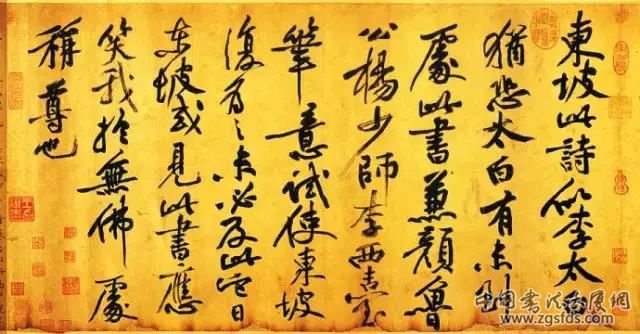 東坡此詩似李太白
猶恐太白有未到
處此書兼顏魯
公楊少師李西臺
筆意試使東坡
復為之未必及此它日
東坡或見此書應
笑我於無佛處
稱尊也
中国书法发展网
www.zgsfds.com